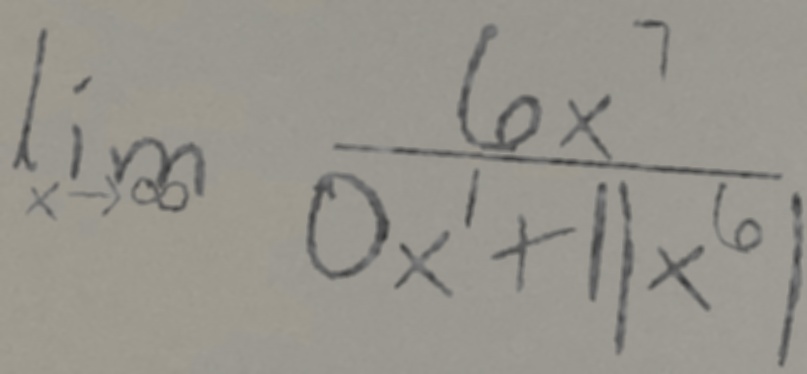 lim x→∞ 6x^7 / (0x^1 + 1|x^6|)